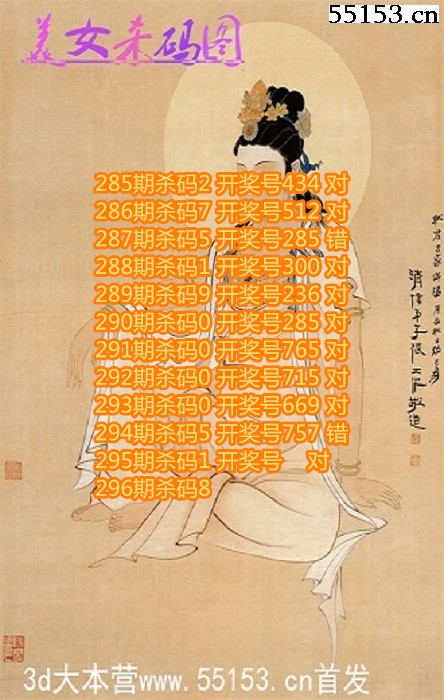 55153.cn
美女杀码图
285期杀码2 开奖号434 对
286期杀码7 开奖号512 对
287期杀码5 开奖号285 错
288期杀码1 开奖号300 对
289期杀码9 开奖号236 对
290期杀码0 开奖号285 对
291期杀码0 开奖号765 对
292期杀码0 开奖号715 对
293期杀码0 开奖号669 对
294期杀码5 开奖号757 错
295期杀码1 开奖号 对
296期杀码8
3d大本营www.55153.cn首发